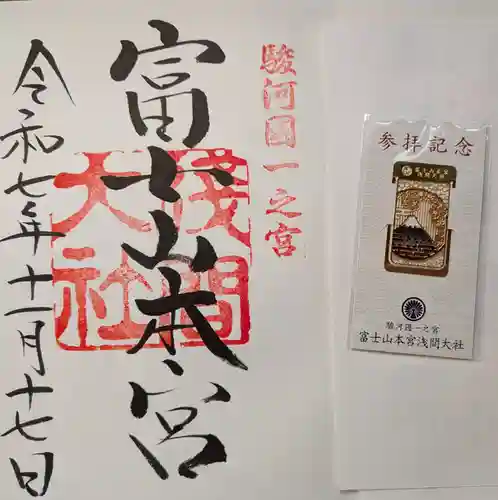 駿河國一之宮
富士山本宮
淺間大社
令和七年十一月十七日
参拝記念
駿河國一之宮
富士山本宮浅間大社